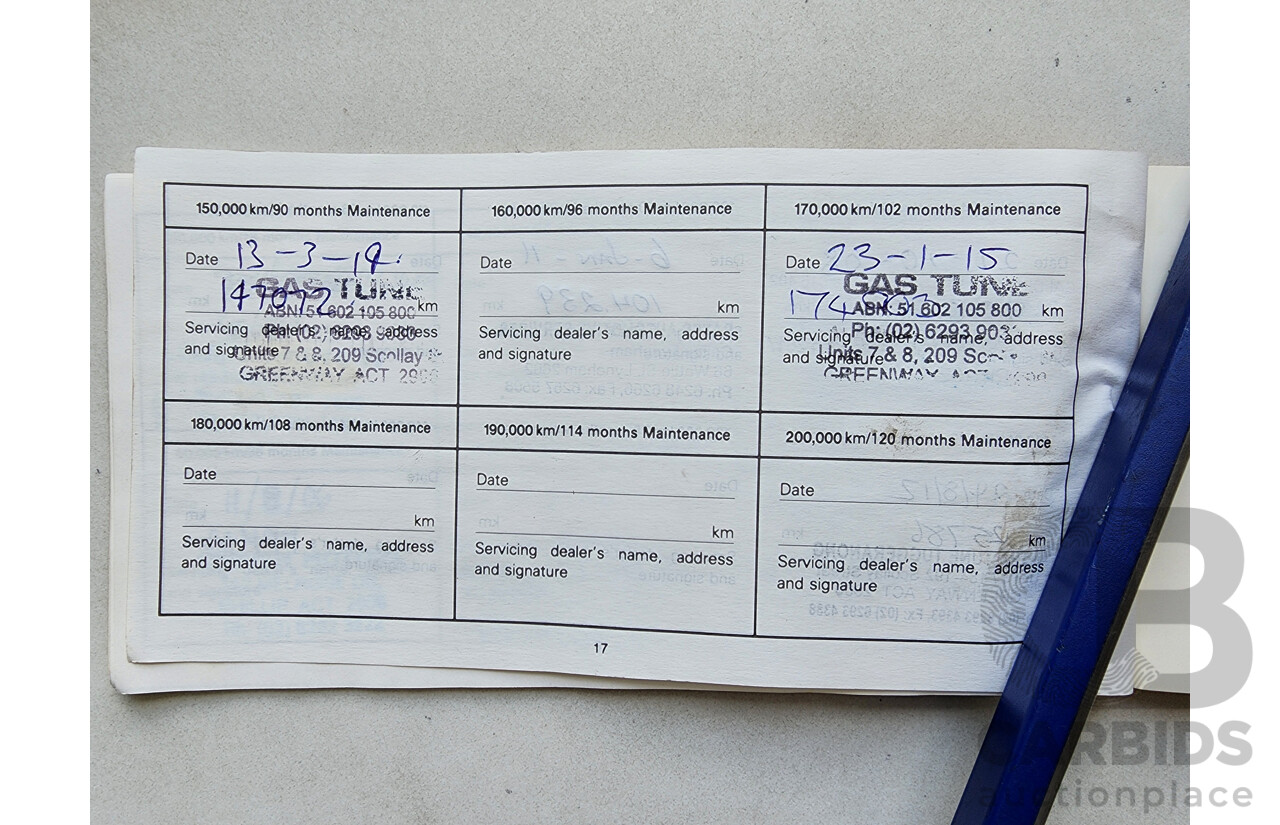 150,000 km/90 months Maintenance
Date 13-3-14
147072 km
GAS TUNE
ABN: 51 602 105 800
Servicing dealer's name, address
and signature
Ph: (02) 6293 9030
Units 7 & 8, 209 Scollay
GREENWAY ACT
160,000 km/96 months Maintenance
Date
km
Servicing dealer's name, address
and signature
170,000 km/102 months Maintenance
Date 23-1-15
GAS TUNE
ABN: 51 602 105 800
km
Servicing dealer's name, address
and signature
Ph: (02) 6293
Units 7 & 8, 209
GREENWAY ACT
180,000 km/108 months Maintenance
Date
km
Servicing dealer's name, address
and signature
190,000 km/114 months Maintenance
Date
km
Servicing dealer's name, address
and signature
200,000 km/120 months Maintenance
Date
km
Servicing dealer's name, address
and signature
17
CARBIDS
auctionplace